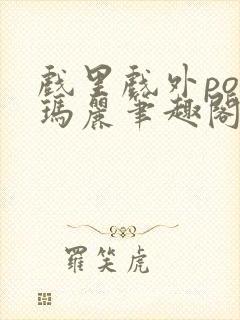 戲里戲外po
瑪麗筆趣閣
羅笑虎